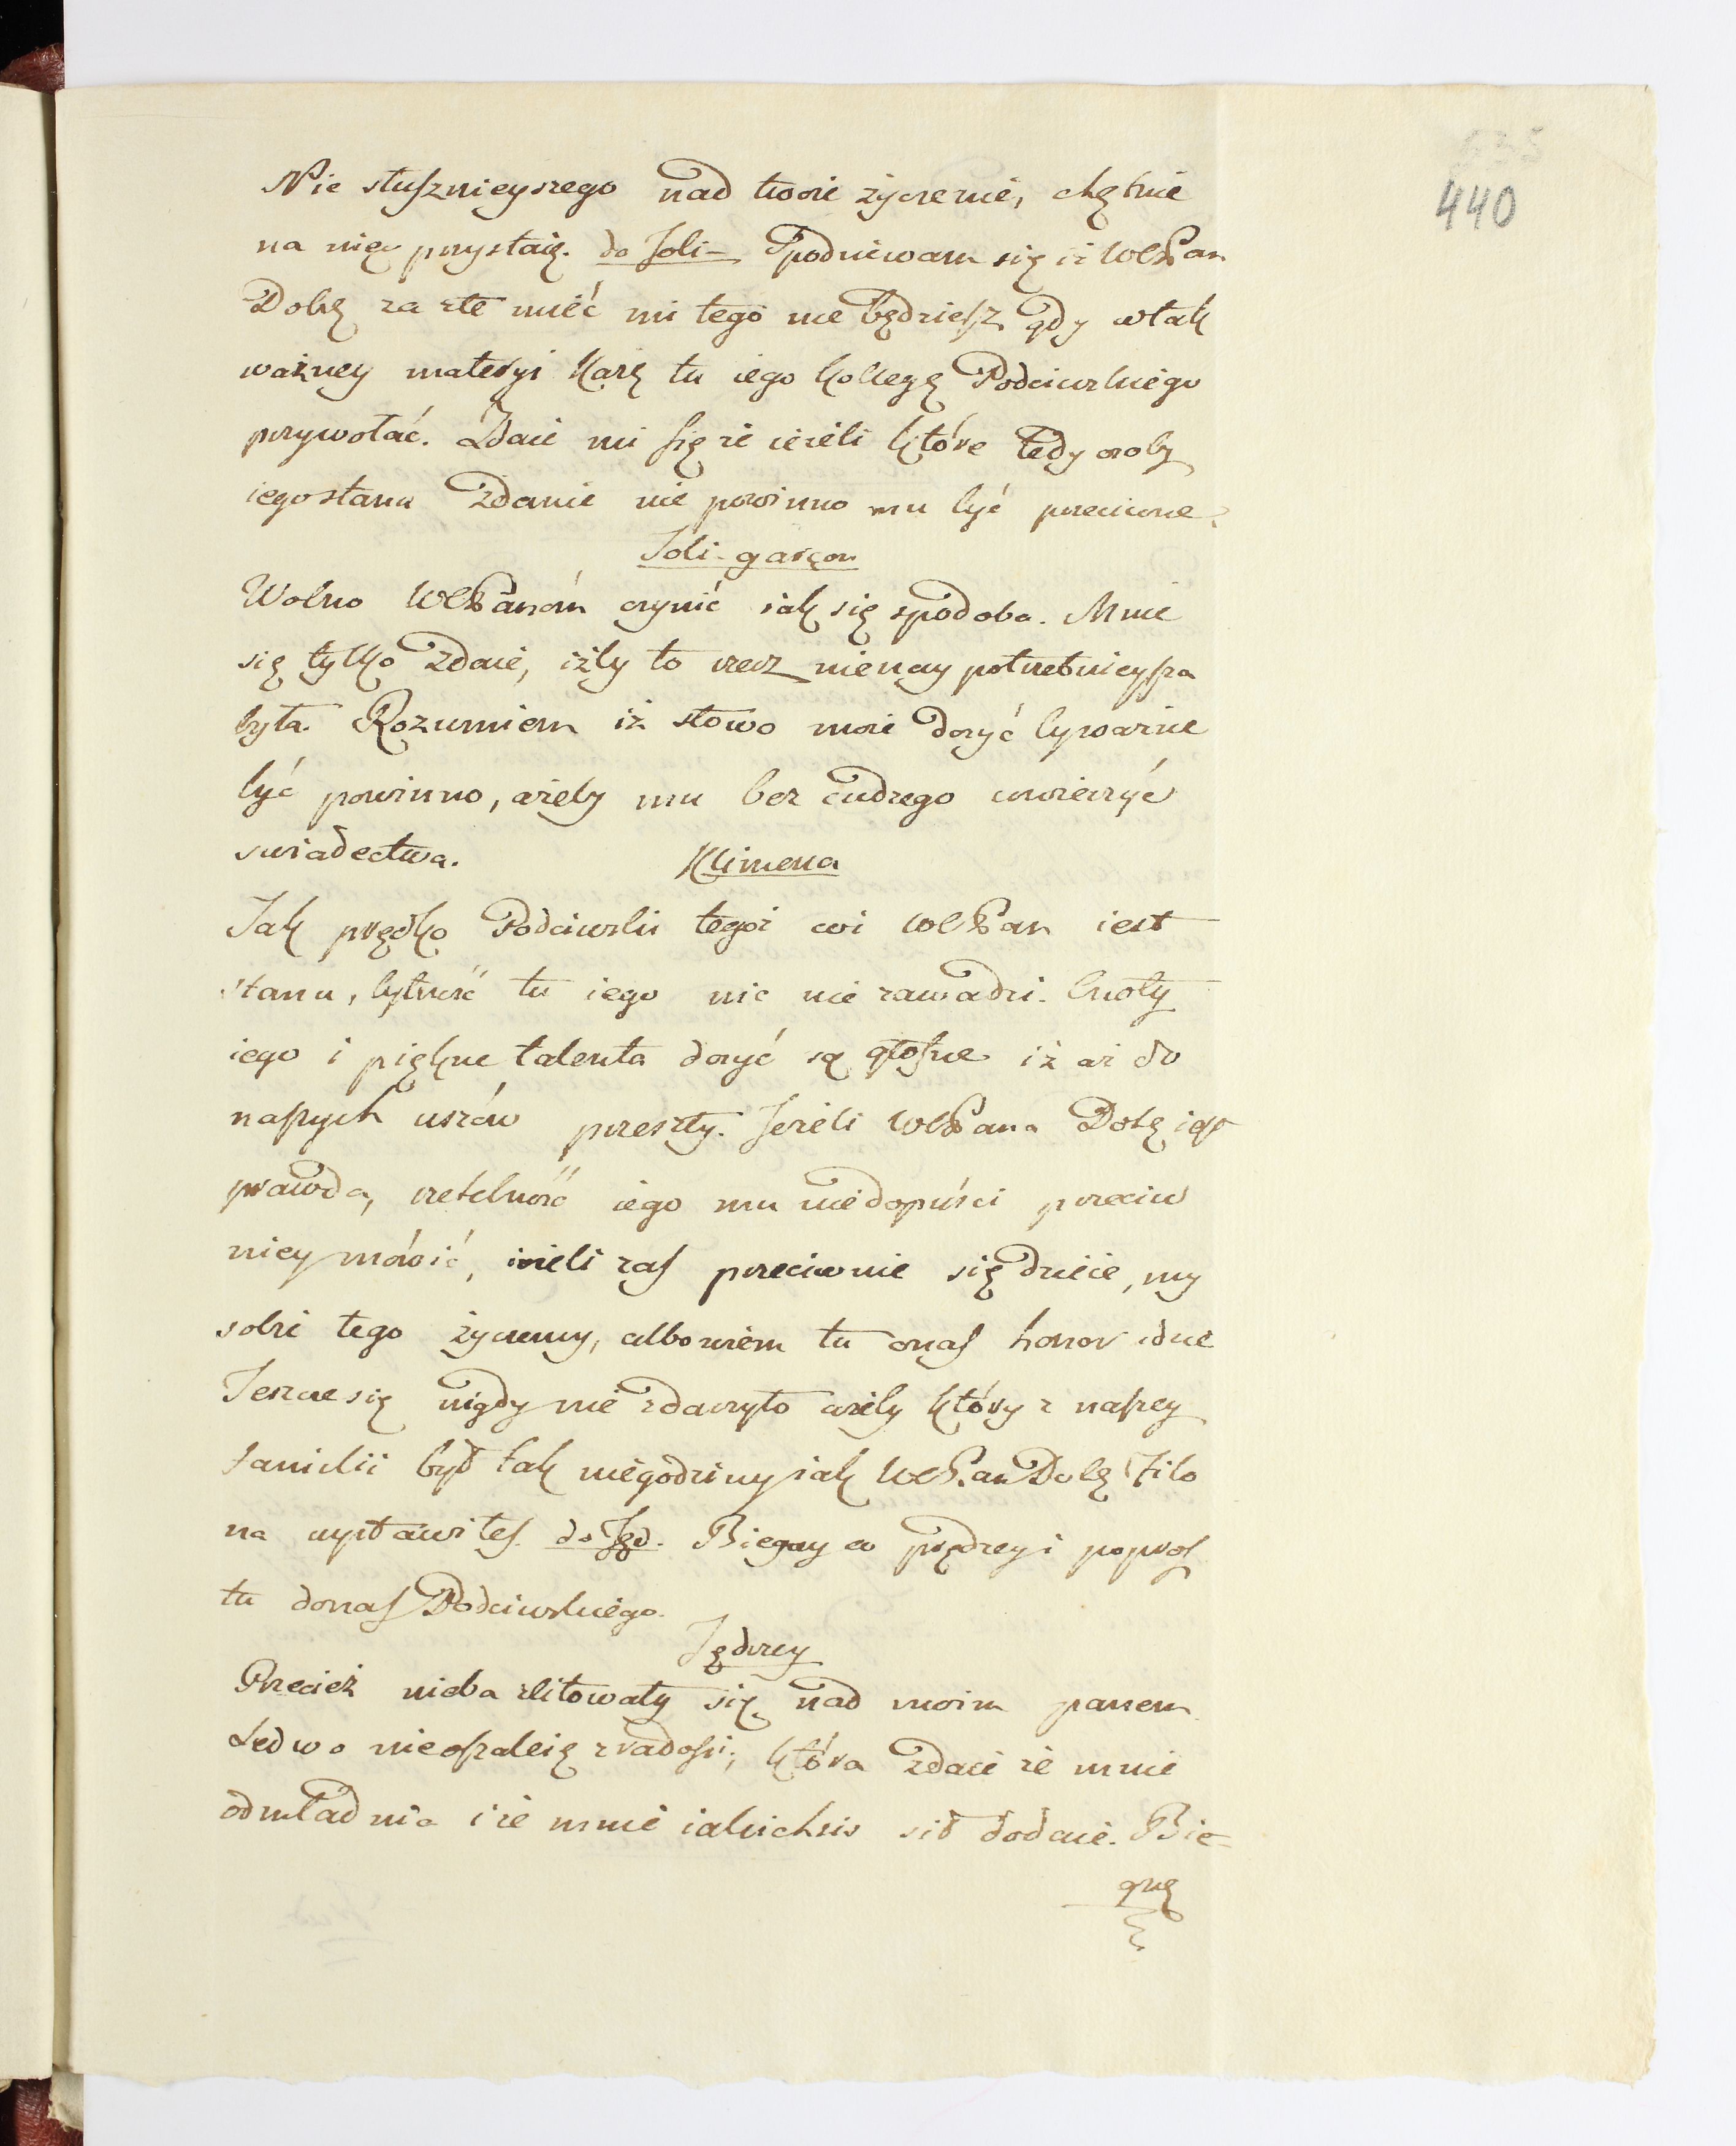 535
440
Nic słusznieyszego nad twoie życzenie, chętnie
na nię przystaię. do Joli- Spodziewam się iż WcPan
Dobż za złe mieć mi tego nie będziesz gdy w tak
ważney materyi każę tu iego kollegę Podciwskiego
przywołać. Zdaie mi się że ieżeli które tedy osoby
iego stanu zdanie nie powinno mu być przeciwne.
Joli-garçon
Wolno WcPanom czynić iak się spodoba. Mnie
się tylko zdaie, iżby to rzecz nienay potrzebnieysza
była. Rozumiem iż słowo moie dosyć byważne
być powinno, ażeby mu bez cudzego uwierzyć
swiadectwa.
Klimena
Jak prędko Podciwski tegoż coi WcPan iest
stanu, bytność tu iego nic nie zawadzi. Cnoty
iego i piękne talenta dosyć są głosne iż aż do
naszych uszów przeszły. Jeżeli WcPana Dobż iest
prawda, rzetelność iego mu niedopuści przeciw
niey mówić, ieżeli zaś przeciwnie się dzieie, my
sobie tego życzemy, albowiem tu o nas honor idzie
Jeszcze się nigdy nie zdarzyło ażeby który z naszey
familii był tak niegodziny iak WcPan Dobż Filo
na wystawiłeś. do Jęd. Biegay co prędzey i poproś
tu donas Podciwskiego.
Jędrzey
Przecież nieba zlitowały się nad moim panem
Ledwo nieoszaleię z radości, która zdaie że mnie
odmładnia i że mnie iakichsis sił dodaie. Bie-
gnę